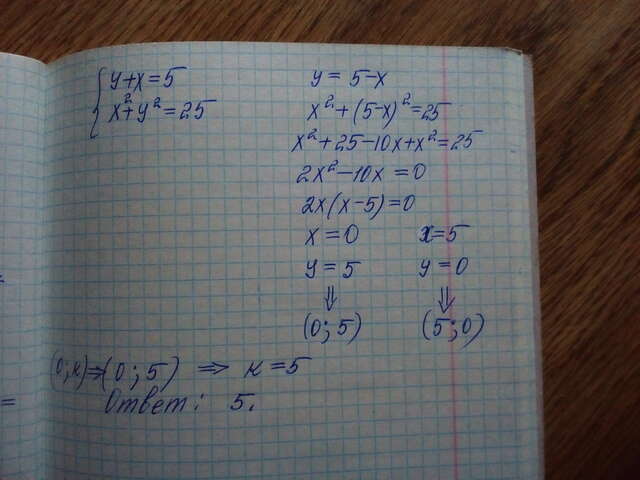 { y+x=5
x²+y²=25
y = 5-x
x²+(5-x)²=25
x²+25-10x+x²=25
2x²-10x=0
2x(x-5)=0
x=0 x=5
y=5 y=0
⇓ ⇓
(0;5) (5;0)
(0;к)⇒(0;5) ⇒ к=5
Ответ: 5.
=